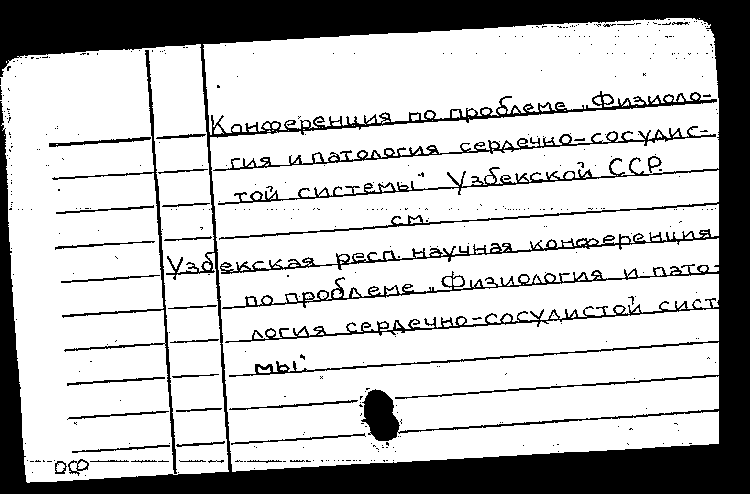 Конференция по проблеме „Физиоло-
гия и патология сердечно-сосудис-
той системы" Узбекской ССР.
см.
Узбекская респ. научная конференция
по проблеме „Физиология и пато-
логия сердечно-сосудистой систе
мы".